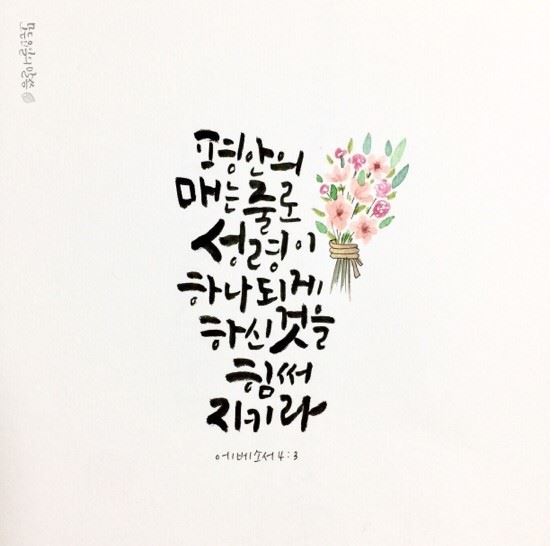 평안의
매는 줄로
성령이
하나되게
하신 것을
힘써
지키라
에베소서 4:3